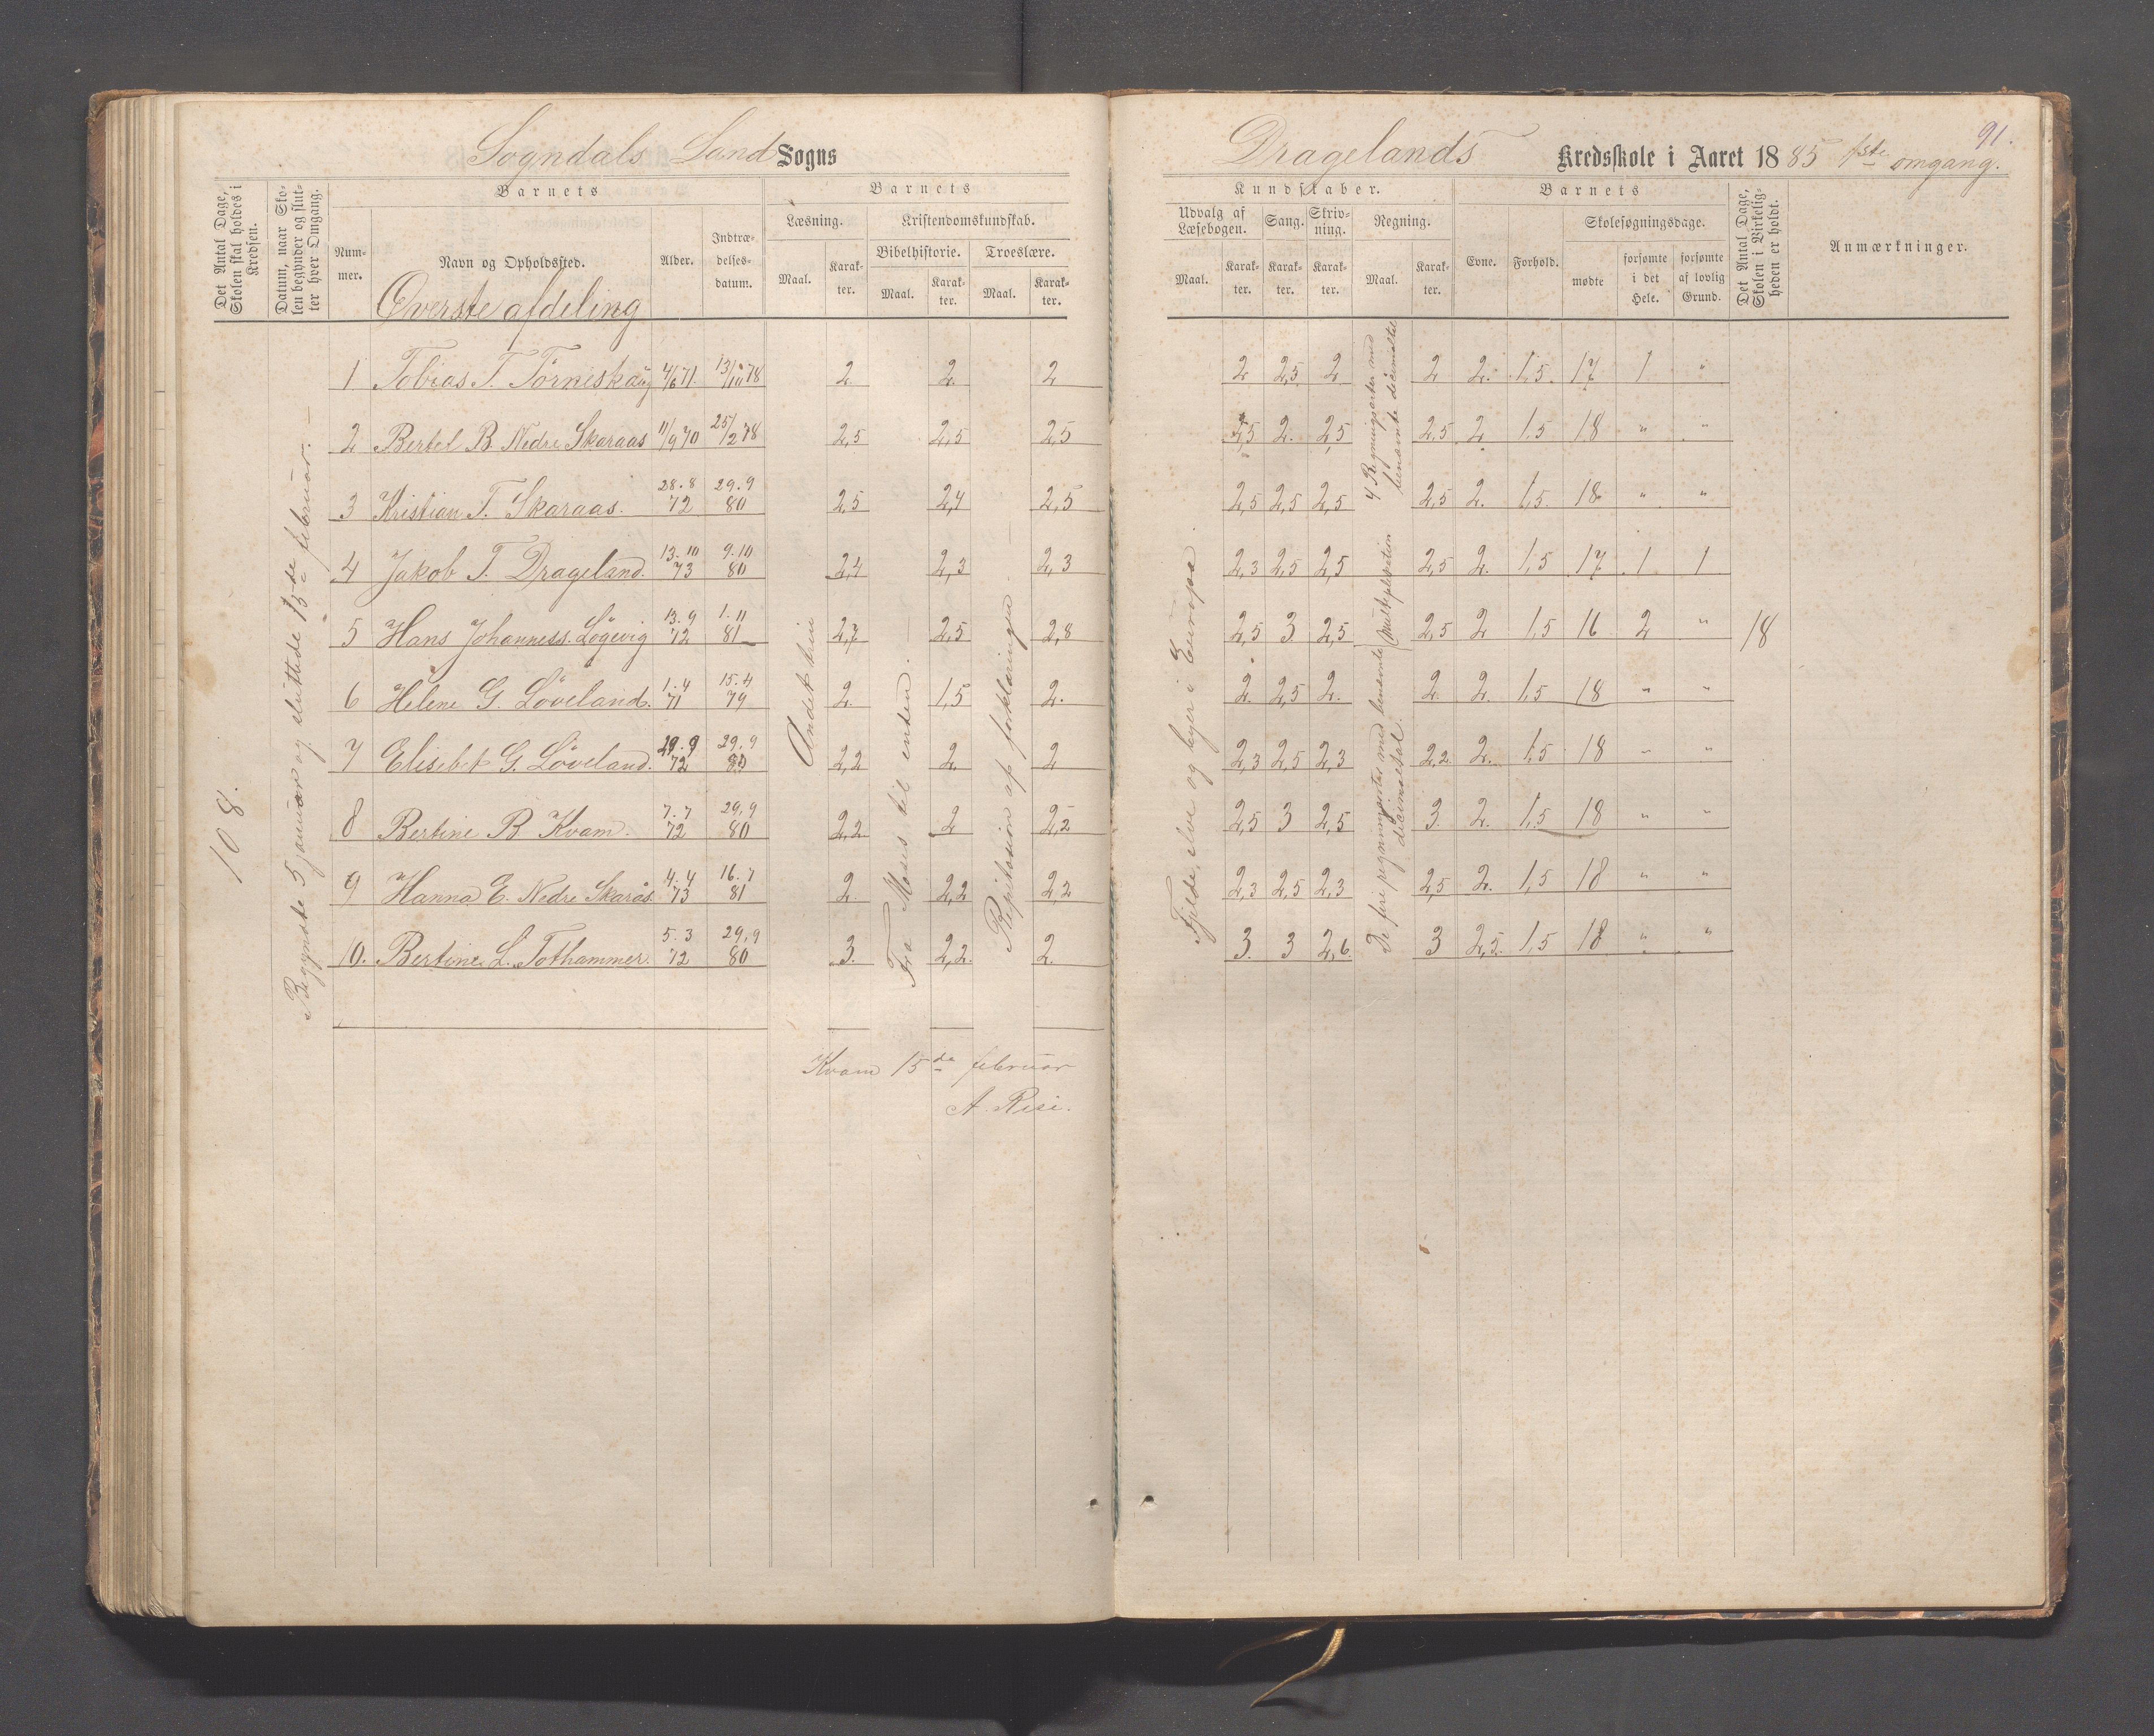 Sogndals Land Sogns
Det Antal Dage, Skolen skal holdes i Kredsen.
Datum, naar Skolen begynder og slutter hver Omgang.
Barnets
Nummer.
Navn og Opholdssted.
Alder.
Indtrædelsesdatum.
Barnets
Læsning.
Kristendomskundskab.
Bibelhistorie.
Troeslære.
Maal.
Karakter.
Maal.
Karakter.
Maal.
Karakter.
Øverste afdeling
108.
Begyndte 5 januar og sluttede 15de februar.
1 Tobias T. 4/6 71. 13/10 78 2 2. 2
2 Bertel B. Nedre Skaraas 11/9 70 25/2 78 2,5 2,5 2,5
3 Kristian T. Skaraas. 28.8 72 29.9 80 2,5 2,4 2,5
4 Jakob T. Drageland. 13.10 73 9.10 80 2,4 2,3 2,3
5 Hans Johanness. Løgevig 13.9 72 1.11 81 2,7 2,5 2,8
6 Helene G. Løveland. 1.4 71 15.4 79 2. 1,5 2.
7 Elisebet G. Løveland. 29.9 72 29.9 80 2,2 2. 2
8 Bertine B. Kvam. 7.7 72 29,9 80 2,2 2 2,2
9 Hanna E. Nedre Skarås. 4.4 73 16.7 81 2. 2,2 2,2
10. Bertine L. Tothammer. 5.3 72 29,9 80 3. 2,2. 2.
Andet trin
Fra Moses til enden.
Repitision af forklaringen
Kvam 15de februar
A. Risi.
91.
Dragelands Kredsskole i Aaret 1885 1ste omgang.
Kundskaber.
Udvalg af Læsebogen.
Sang.
Skrivning.
Regning.
Maal.
Karakter.
Karakter.
Karakter.
Maal.
Karakter.
Barnets
Evne.
Forhold.
Skolesøgningsdage.
mødte
forsømte i det Hele.
forsømte af lovlig Grund.
Det Antal Dage, Skolen i Virkeligheden er holdt.
Anmærkninger.
2 2,5 2 2 2. 1,5. 17 1 "
2,5 2. 2,5 2,5 2 1,5 18 " "
2,5 2,5 2,5 2,5 2. 1,5. 18. " "
2,3 2,5 2,5 2,5 2. 1,5 17 1 1
2,5 3 2,5 2,5 2 1,5 16 2 " 18
2. 2,5 2. 2. 2. 1,5 18 " "
2,3 2,5 2,3 2,2. 2. 1,5 18 " "
2,5 3 2,5 3. 2. 1,5 18 " "
2,3 2,5 2,3 2,5 2. 1,5 18 " "
3. 3 2,6. 3 2,5. 1,5 18 " "
Fjelde, elve og byer i Europa.
4 Regningsarter med benævnte decimaltal
Multiplikation
De fire regningsarter med benævnte decimaltal.